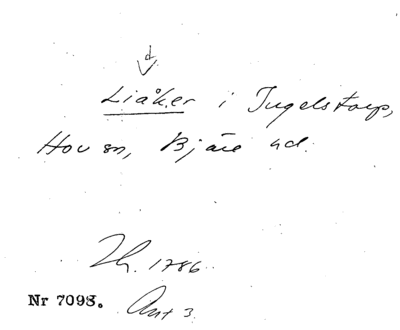 d
Liåker i Ingelstorp,
Hov sn, Bjäre hd.
Lh. 1786
Nr 7098. Ant 3